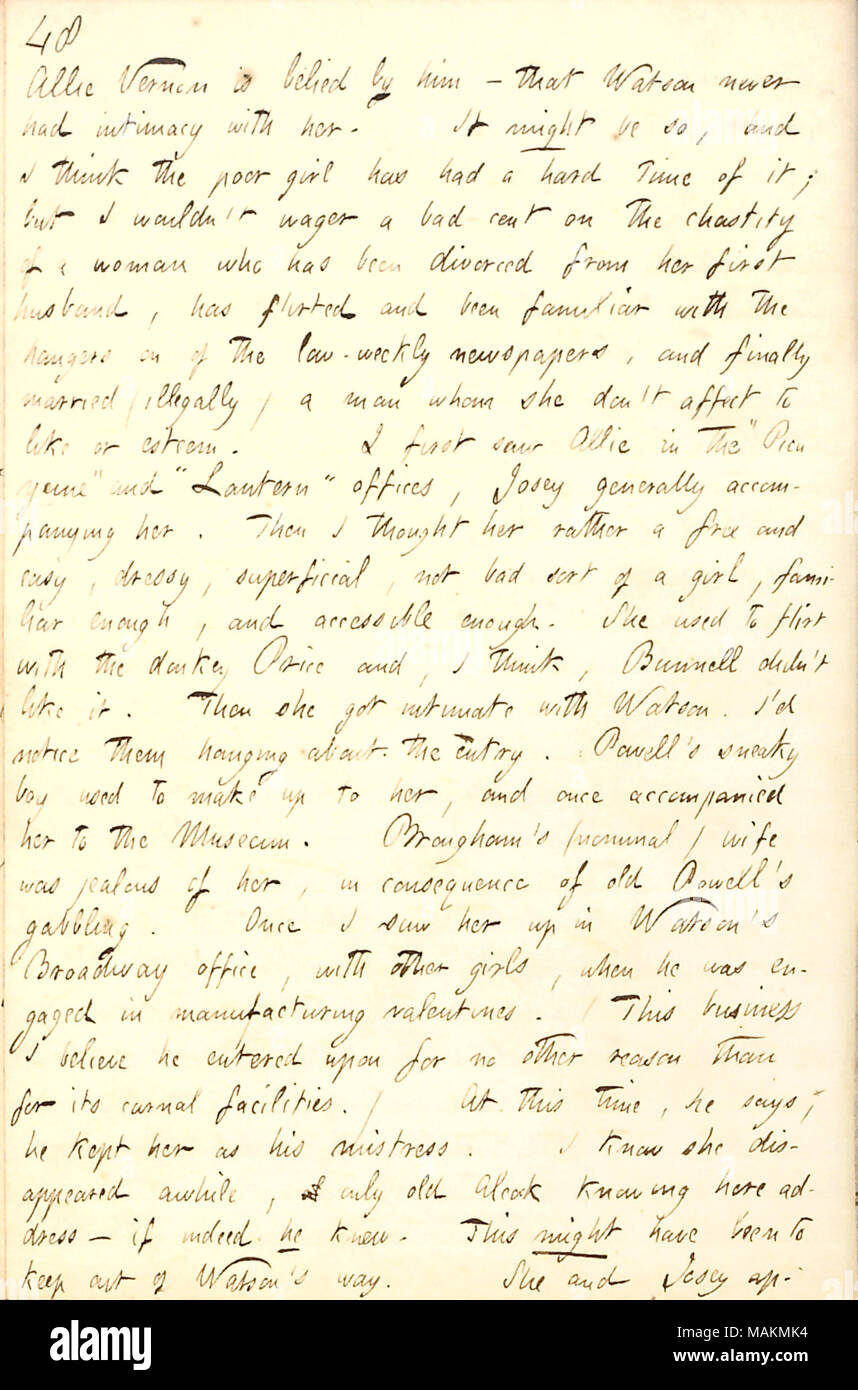 48
Allie Vernon is belied by him — that Watson never
had intimacy with her. It might be so, and
I think the poor girl has had a hard time of it;
but I wouldn't wager a bad cent on the chastity
of a woman who has been divorced from her first
husband, has flirted and been familiar with the
hangers on of the low-weekly newspapers, and finally
married (illegally) a man whom she don't affect to
like or esteem. I first saw Allie in the "Pica
yune" and "Lantern" offices, Josey generally accom-
panying her. Then I thought her rather a free and
easy, dressy, superficial, not bad sort of a girl, fami-
liar enough, and accessible enough. She used to flirt
with the donkey Price and, I think, Bunnell didn't
like it. Then she got intimate with Watson. I'd
notice them hanging about the entry. Powell's sneaky
boy used to make up to her, and once accompanied
her to the Museum. Brougham's (nominal) wife
was jealous of her, in consequence of old Powell's
gabbling. Once I saw her up in Watson's
Broadway office, with other girls, when he was en-
gaged in manufacturing valentines. (This business
I believe he entered upon for no other reason than
for its carnal facilities.) At this time, he says,
he kept her as his mistress. I know she dis-
appeared awhile, only old Alcock knowing here ad-
dress — if indeed he knew. This might have been to
keep out of Watson's way. She and Josey ap-
alamy
Image ID: MAKMK4
www.alamy.com